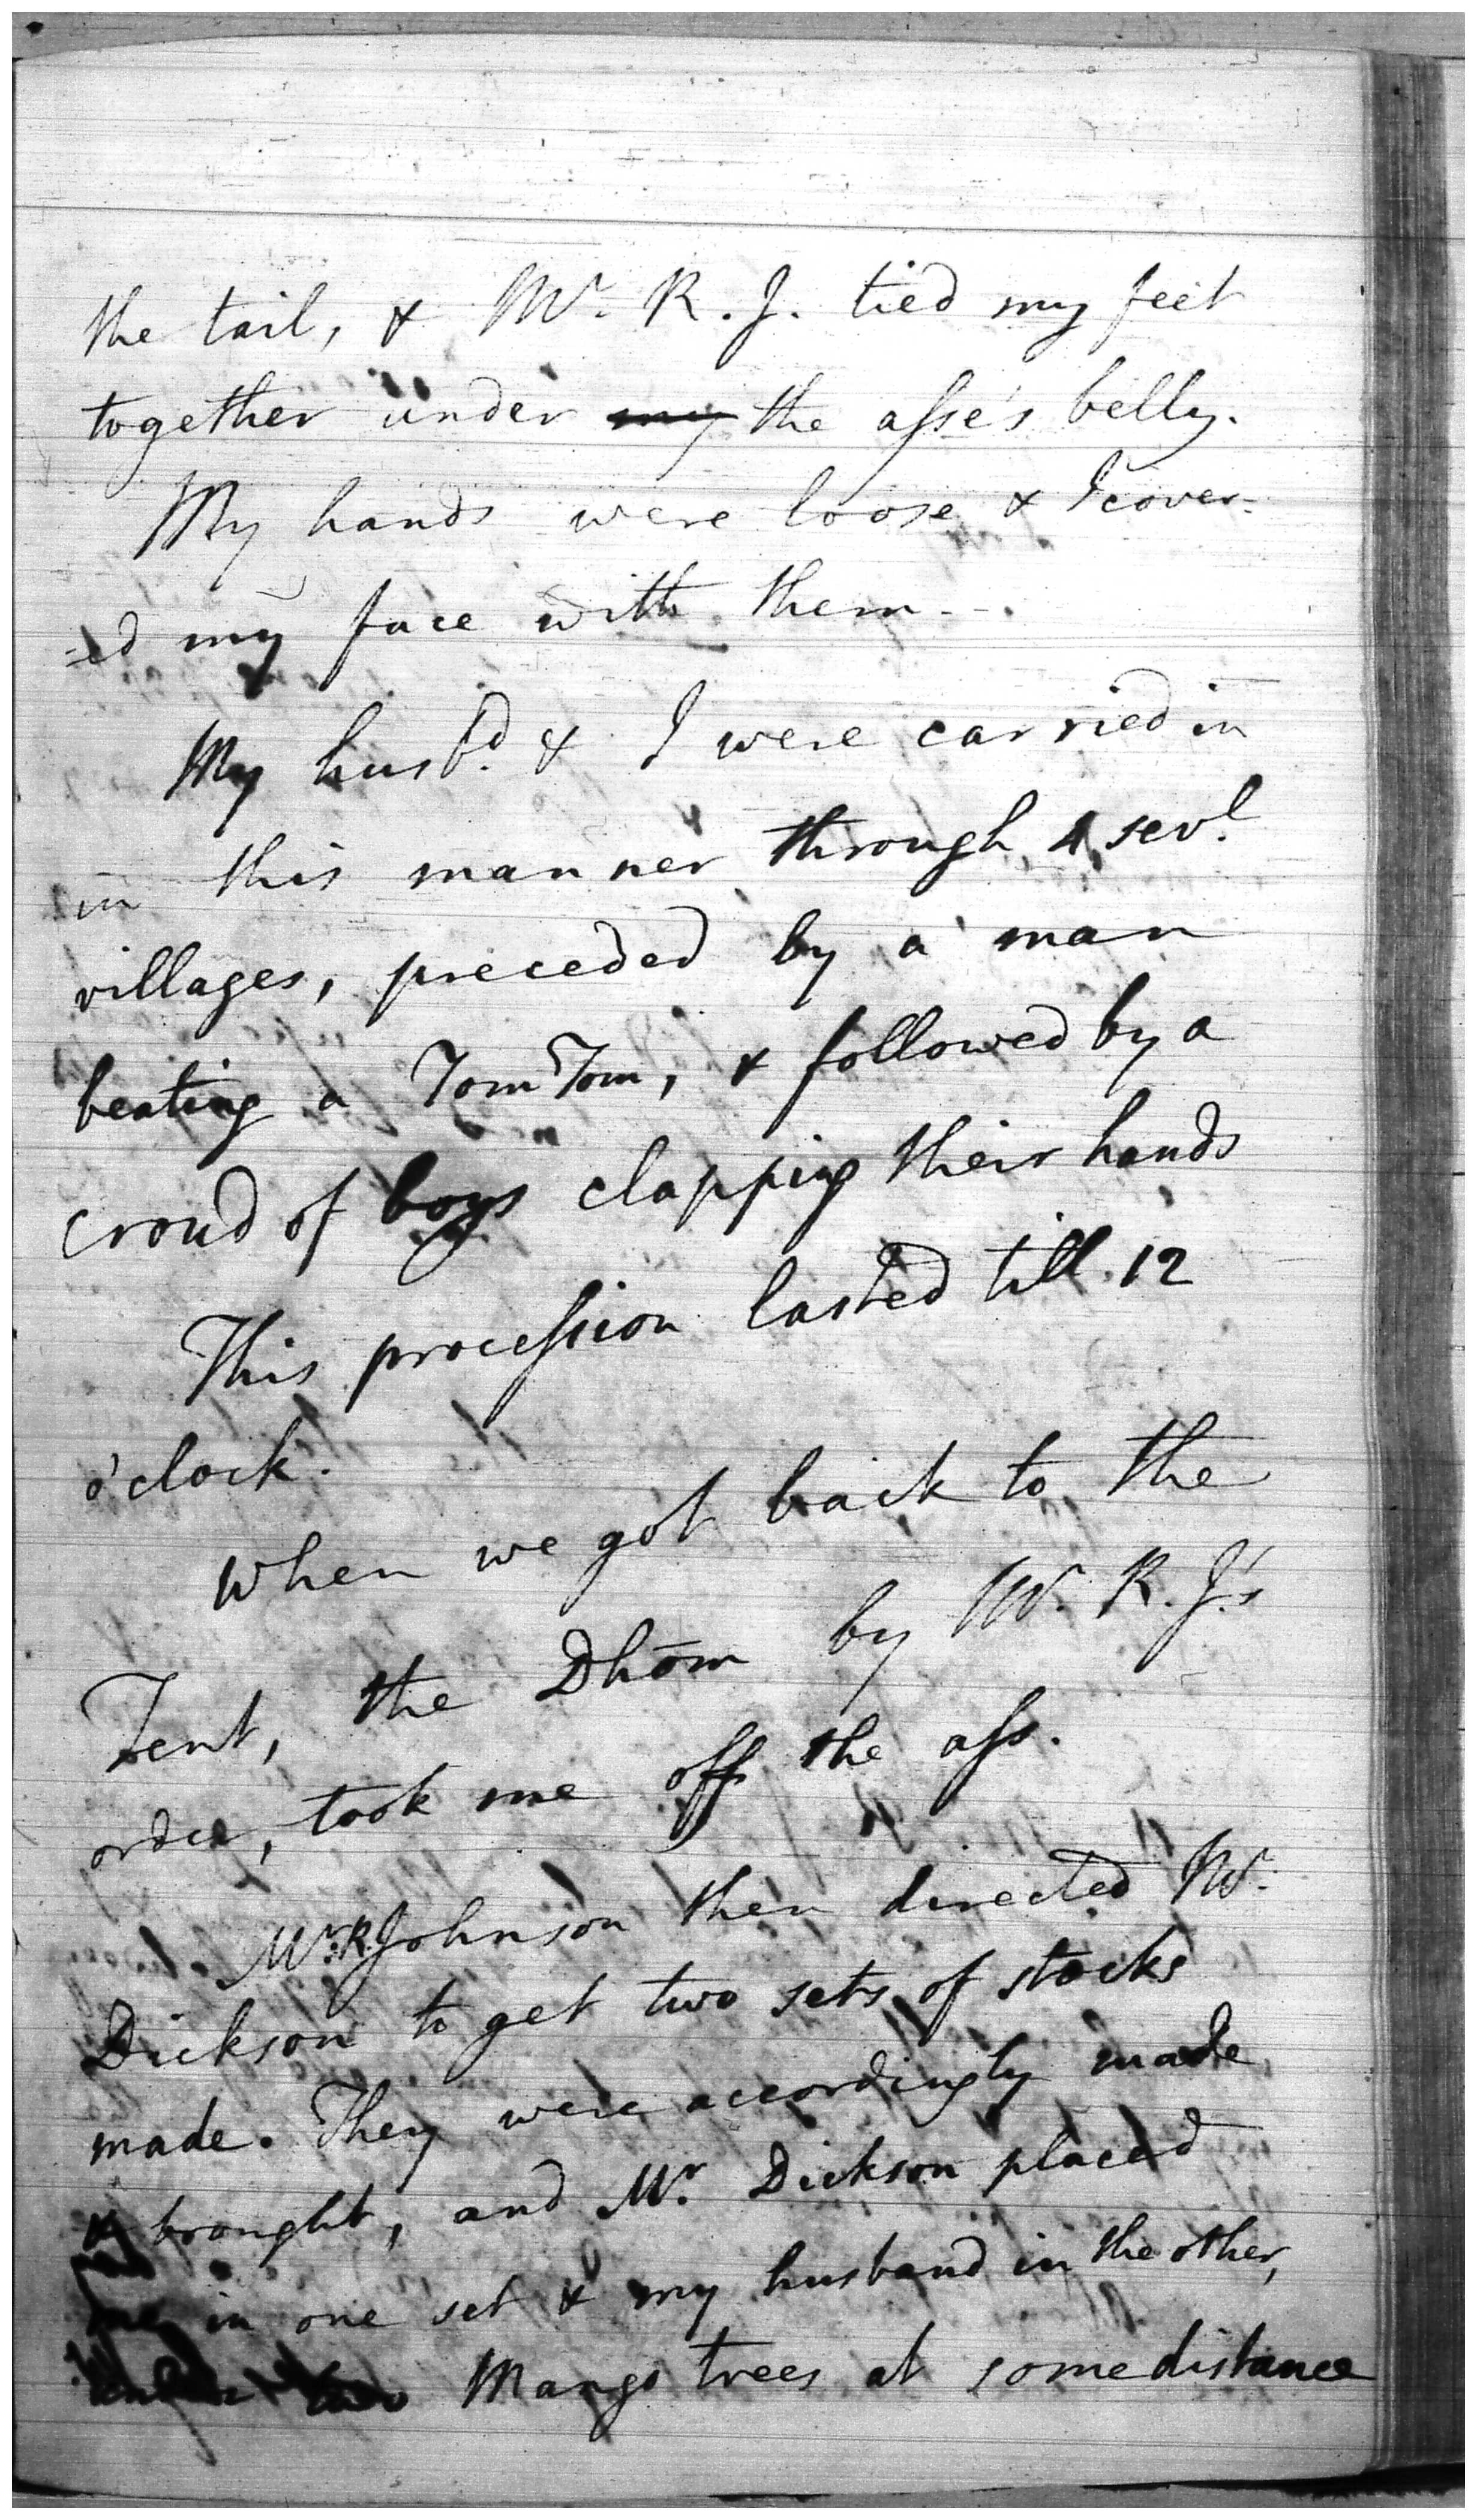 the tail, & Mr. R. J. tied my feet
together under my the asse's belly.
My hands were loose & I cover-
=ed my face with them -.
My husbd. & I were carried in
in this manner through 4 sevl.
villages, preceded by a man
beating a Tom Tom, & followed by a
croud of boys clapping their hands
This procession lasted till 12
o'clock.
When we got back to the
Tent, the Dhōm by Mr. R. J.'s
order, took me off the ass.
Mr. R. Johnson then directed Mr.
Dickson to get two sets of stocks
made. They were accordingly made
& brought, and Mr. Dickson placed
me in one set & my husband in the other,
under two Mango trees at some distance